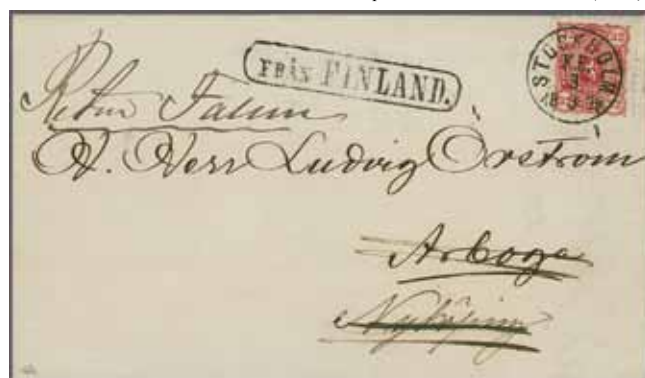 FRÅN FINLAND.
STOCKHOLM
Retur Falun
Herr Ludvig Örström
Arboga
Nyköping